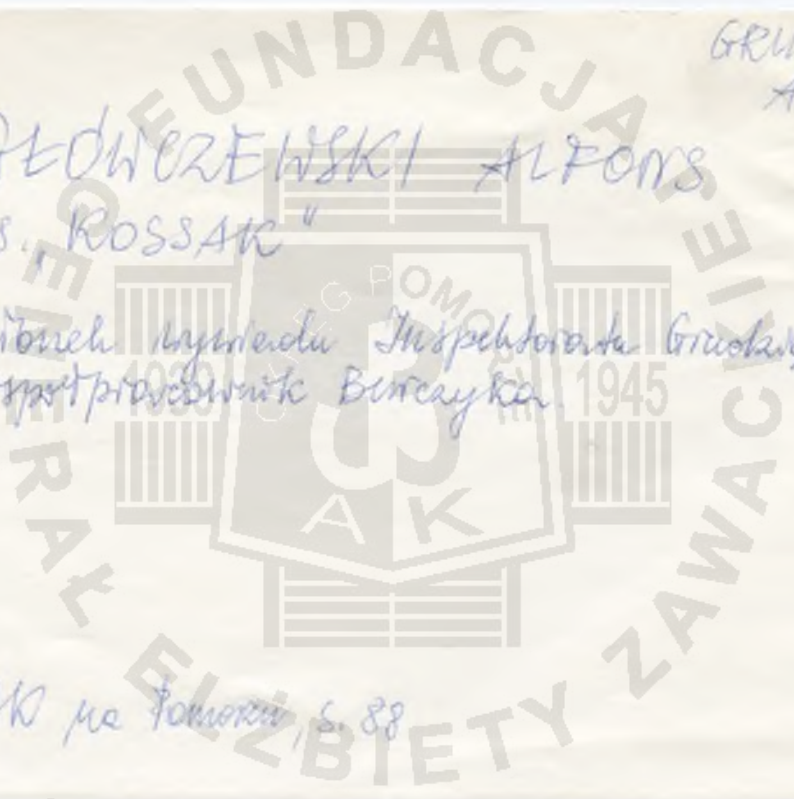 GRU
A
GŁÓWCZEWSKI ALFONS
s. „ROSSAK"
łonek wywiadu Inspektoratu Grudzią
współpracownik
K na Pomorzu, s. 88
FUNDACJA
GENERAŁ ELŻBIETY ZAWACKIEJ
OKRĘG POMORZE
1939 1945
AK